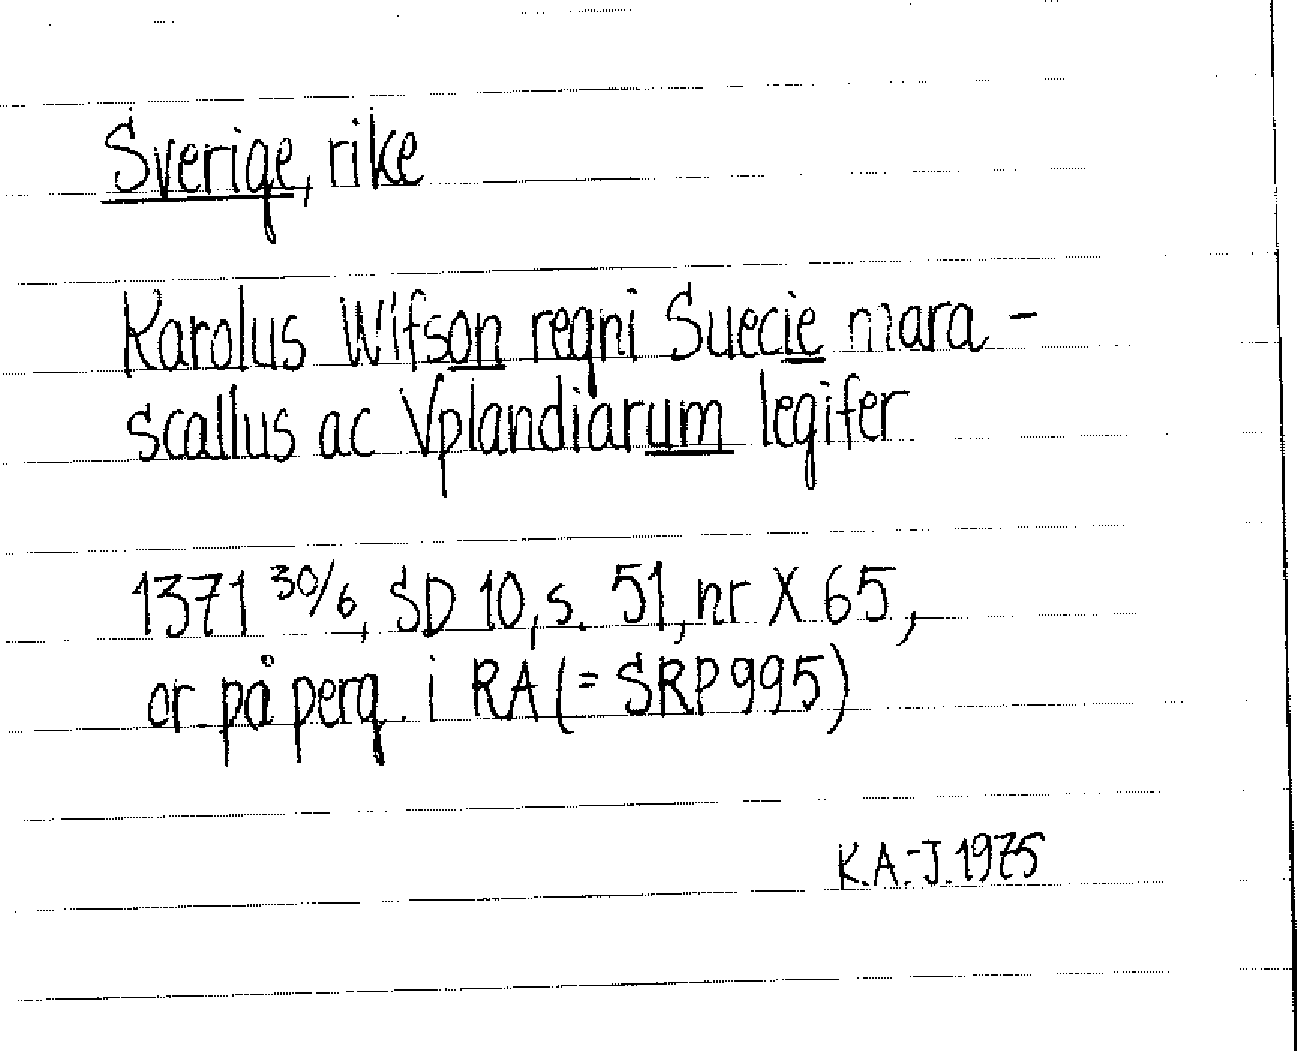 Sverige, rike
Karolus Wifson regni Suecie mara-
scallus ac Vplandiarum legifer
1371 30/6, SD 10, s. 51, nr X 65,
or på perg. i RA (= SRP 995)
K.A.-J. 1975